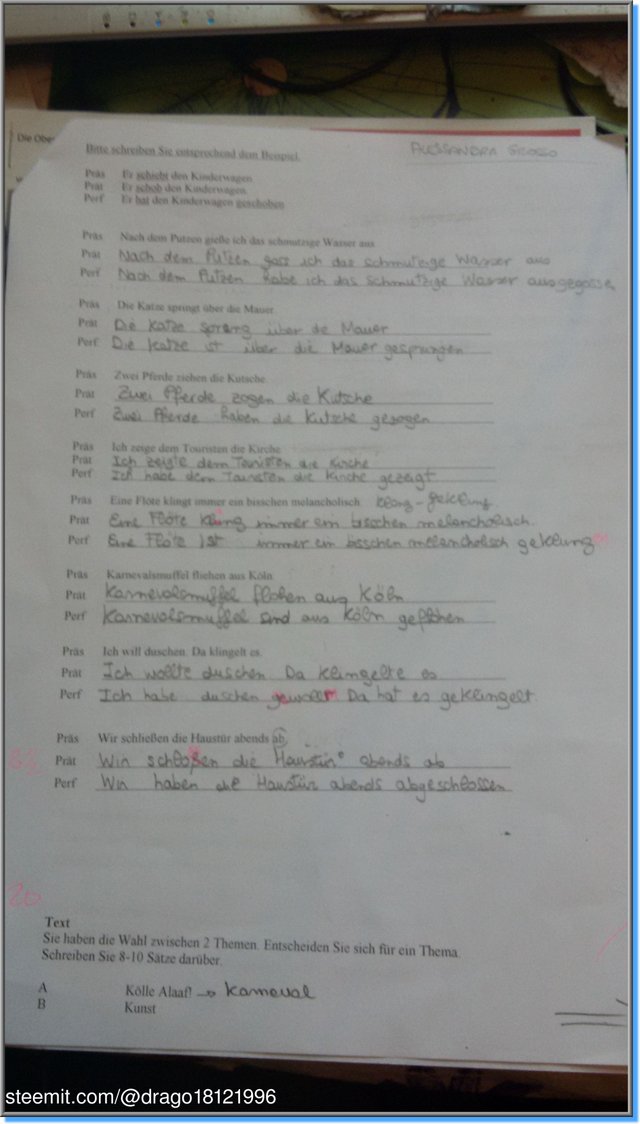 Die Obe
Bitte schreiben Sie entsprechend dem Beispiel.
ALESSANDRA GROSSO
Präs Er schiebt den Kinderwagen
Prät Er schob den Kinderwagen
Perf Er hat den Kinderwagen geschoben
Präs Nach dem Putzen gieße ich das schmutzige Wasser aus
Prät Nach dem Putzen goss ich das schmutzige Wasser aus
Perf Nach dem Putzen habe ich das schmutzige Wasser ausgegossen
Präs Die Katze springt über die Mauer
Prät Die Katze sprang über de Mauer
Perf Die Katze ist über die Mauer gesprungen
Präs Zwei Pferde ziehen die Kutsche
Prät Zwei Pferde zogen die Kutsche
Perf Zwei Pferde haben die Kutsche gezogen
Präs Ich zeige dem Touristen die Kirche
Prät Ich zeigte dem Touristen die Kirche
Perf Ich habe dem Touristen die Kirche gezeigt
Präs Eine Flöte klingt immer ein bisschen melancholisch klang - geklung
Prät Eine Flöte immer ein bisschen melancholisch.
Perf Eine Flöte ist immer ein bisschen melancholisch geklung
Präs Karnevalsmuffel fliehen aus Köln
Prät Karnevalsmuffel flohen aus Köln
Perf Karnevalsmuffel sind aus Köln geflohen
Präs Ich will duschen. Da klingelt es.
Prät Ich wollte duschen. Da klingelte es
Perf Ich habe duschen Da hat es geklingelt
Präs Wir schließen die Haustür abends ab.
Prät Wir die Haustür abends ab
Perf Wir haben die Haustür abends abgeschlossen
20
Text
Sie haben die Wahl zwischen 2 Themen. Entscheiden Sie sich für ein Thema.
Schreiben Sie 8-10 Sätze darüber.
A Kölle Alaaf! → Karneval
B Kunst
steemit.com/@drago18121996